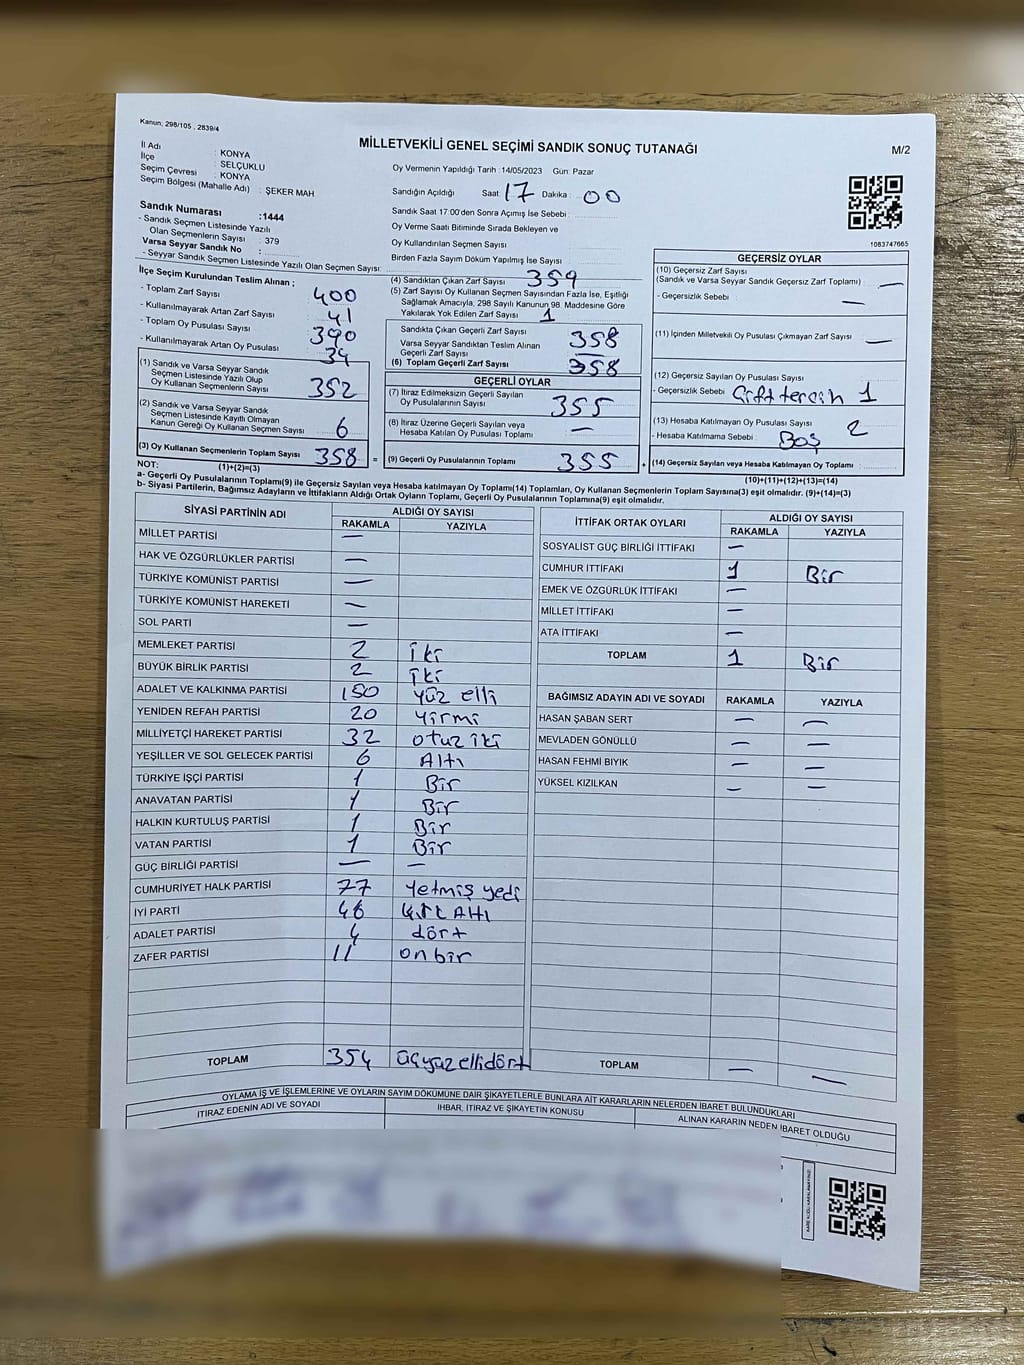 Kanun, 298/105 , 2839/4
MİLLETVEKİLİ GENEL SEÇİMİ SANDIK SONUÇ TUTANAĞI
M/2
İl Adı : KONYA
İlçe : SELÇUKLU
Seçim Çevresi : KONYA
Seçim Bölgesi (Mahalle Adı) : ŞEKER MAH
Sandık Numarası :1444
- Sandık Seçmen Listesinde Yazılı
Olan Seçmenlerin Sayısı : 379
Varsa Seyyar Sandık No :
- Seyyar Sandık Seçmen Listesinde Yazılı Olan Seçmen Sayısı:
Oy Vermenin Yapıldığı Tarih :14/05/2023 Gün: Pazar
Sandığın Açıldığı Saat: 17 Dakika : 00
Sandık Saat 17:00'den Sonra Açımış İse Sebebi :
Oy Verme Saati Bitiminde Sırada Bekleyen ve
Oy Kullandırılan Seçmen Sayısı
Birden Fazla Sayım Döküm Yapılmış İse Sayısı :
1083747665
İlçe Seçim Kurulundan Teslim Alınan ;
- Toplam Zarf Sayısı 400
- Kullanılmayarak Artan Zarf Sayısı 41
- Toplam Oy Pusulası Sayısı 390
- Kullanılmayarak Artan Oy Pusulası 34
(1) Sandık ve Varsa Seyyar Sandık
Seçmen Listesinde Yazılı Olup
Oy Kullanan Seçmenlerin Sayısı 352
(2) Sandık ve Varsa Seyyar Sandık
Seçmen Listesinde Kayıtlı Olmayan
Kanun Gereği Oy Kullanan Seçmen Sayısı 6
(3) Oy Kullanan Seçmenlerin Toplam Sayısı 358 =
(1)+(2)=(3)
(4) Sandıktan Çıkan Zarf Sayısı 359
(5) Zarf Sayısı Oy Kullanan Seçmen Sayısından Fazla İse, Eşitliği
Sağlamak Amacıyla, 298 Sayılı Kanunun 98. Maddesine Göre
Yakılarak Yok Edilen Zarf Sayısı 1
Sandıkta Çıkan Geçerli Zarf Sayısı 358
Varsa Seyyar Sandıktan Teslim Alınan
Geçerli Zarf Sayısı —
(6) Toplam Geçerli Zarf Sayısı 358
GEÇERLİ OYLAR
(7) İtiraz Edilmeksizin Geçerli Sayılan
Oy Pusulalarının Sayısı 355
(8) İtiraz Üzerine Geçerli Sayılan veya
Hesaba Katılan Oy Pusulası Toplamı —
(9) Geçerli Oy Pusulalarının Toplamı 355 +
GEÇERSİZ OYLAR
(10) Geçersiz Zarf Sayısı
(Sandık ve Varsa Seyyar Sandık Geçersiz Zarf Toplamı) : —
- Geçersizlik Sebebi : —
(11) İçinden Milletvekili Oy Pusulası Çıkmayan Zarf Sayısı : —
(12) Geçersiz Sayılan Oy Pusulası Sayısı
- Geçersizlik Sebebi : Çift tercih 1
(13) Hesaba Katılmayan Oy Pusulası Sayısı : 2
- Hesaba Katılmama Sebebi : Boş
(14) Geçersiz Sayılan veya Hesaba Katılmayan Oy Toplamı :
(10)+(11)+(12)+(13)=(14)
NOT:
a- Geçerli Oy Pusulalarının Toplamı(9) ile Geçersiz Sayılan veya Hesaba Katılmayan Oy Toplamı(14) Toplamları, Oy Kullanan Seçmenlerin Toplam Sayısına(3) eşit olmalıdır. (9)+(14)=(3)
b- Siyasi Partilerin, Bağımsız Adayların ve İttifakların Aldığı Ortak Oyların Toplamı, Geçerli Oy Pusulalarının Toplamına(9) eşit olmalıdır.
SİYASİ PARTİNİN ADI ALDIĞI OY SAYISI
RAKAMLA YAZIYLA
MİLLET PARTİSİ —
HAK VE ÖZGÜRLÜKLER PARTİSİ —
TÜRKİYE KOMÜNİST PARTİSİ —
TÜRKİYE KOMÜNİST HAREKETİ —
SOL PARTİ —
MEMLEKET PARTİSİ 2 iki
BÜYÜK BİRLİK PARTİSİ 2 iki
ADALET VE KALKINMA PARTİSİ 150 yüz elli
YENİDEN REFAH PARTİSİ 20 yirmi
MİLLİYETÇİ HAREKET PARTİSİ 32 otuz iki
YEŞİLLER VE SOL GELECEK PARTİSİ 6 Altı
TÜRKİYE İŞÇİ PARTİSİ 1 Bir
ANAVATAN PARTİSİ 1 Bir
HALKIN KURTULUŞ PARTİSİ 1 Bir
VATAN PARTİSİ 1 Bir
GÜÇ BİRLİĞİ PARTİSİ — —
CUMHURİYET HALK PARTİSİ 77 yetmiş yedi
İYİ PARTİ 46 kırk Altı
ADALET PARTİSİ 4 dört
ZAFER PARTİSİ 11 on bir
TOPLAM 354 üçyüzellidört
İTTİFAK ORTAK OYLARI ALDIĞI OY SAYISI
RAKAMLA YAZIYLA
SOSYALİST GÜÇ BİRLİĞİ İTTİFAKI —
CUMHUR İTTİFAKI 1 Bir
EMEK VE ÖZGÜRLÜK İTTİFAKI —
MİLLET İTTİFAKI —
ATA İTTİFAKI —
TOPLAM 1 Bir
BAĞIMSIZ ADAYIN ADI VE SOYADI RAKAMLA YAZIYLA
HASAN ŞABAN SERT — —
MEVLADEN GÖNÜLLÜ — —
HASAN FEHMİ BIYIK — —
YÜKSEL KIZILKAN — —
TOPLAM — —
OYLAMA İŞ VE İŞLEMLERİNE VE OYLARIN SAYIM DÖKÜMÜNE DAİR ŞİKAYETLERLE BUNLARA AİT KARARLARIN NELERDEN İBARET BULUNDUKLARI
İTİRAZ EDENİN ADI VE SOYADI İHBAR, İTİRAZ VE ŞİKAYETİN KONUSU ALINAN KARARIN NEDEN İBARET OLDUĞU